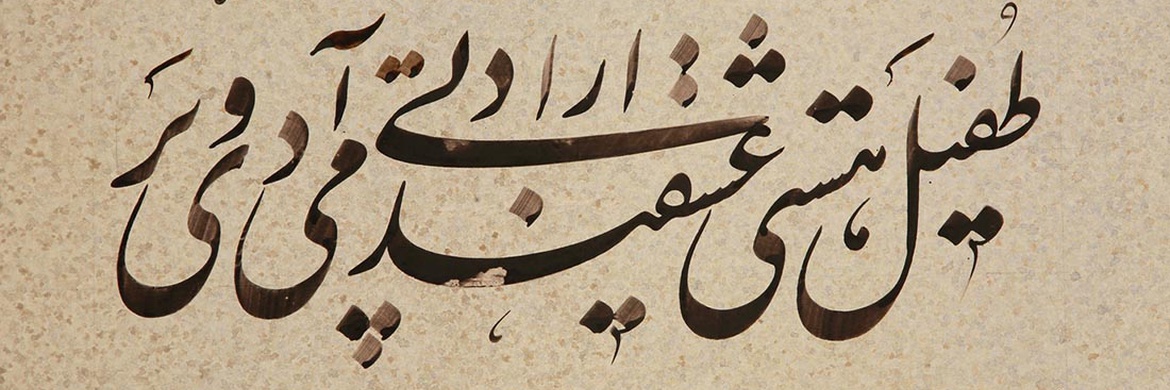 طفیل هستی عشقند آدمی و پری ارادتی